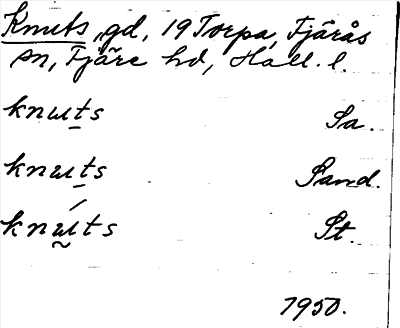 Knuts, gd, 19 Torpa, Fjärås
sn, Fjäre hd, Hall. l.
knɯts Sa.
knɯts Sand.
knɯ́ts St.
1950.